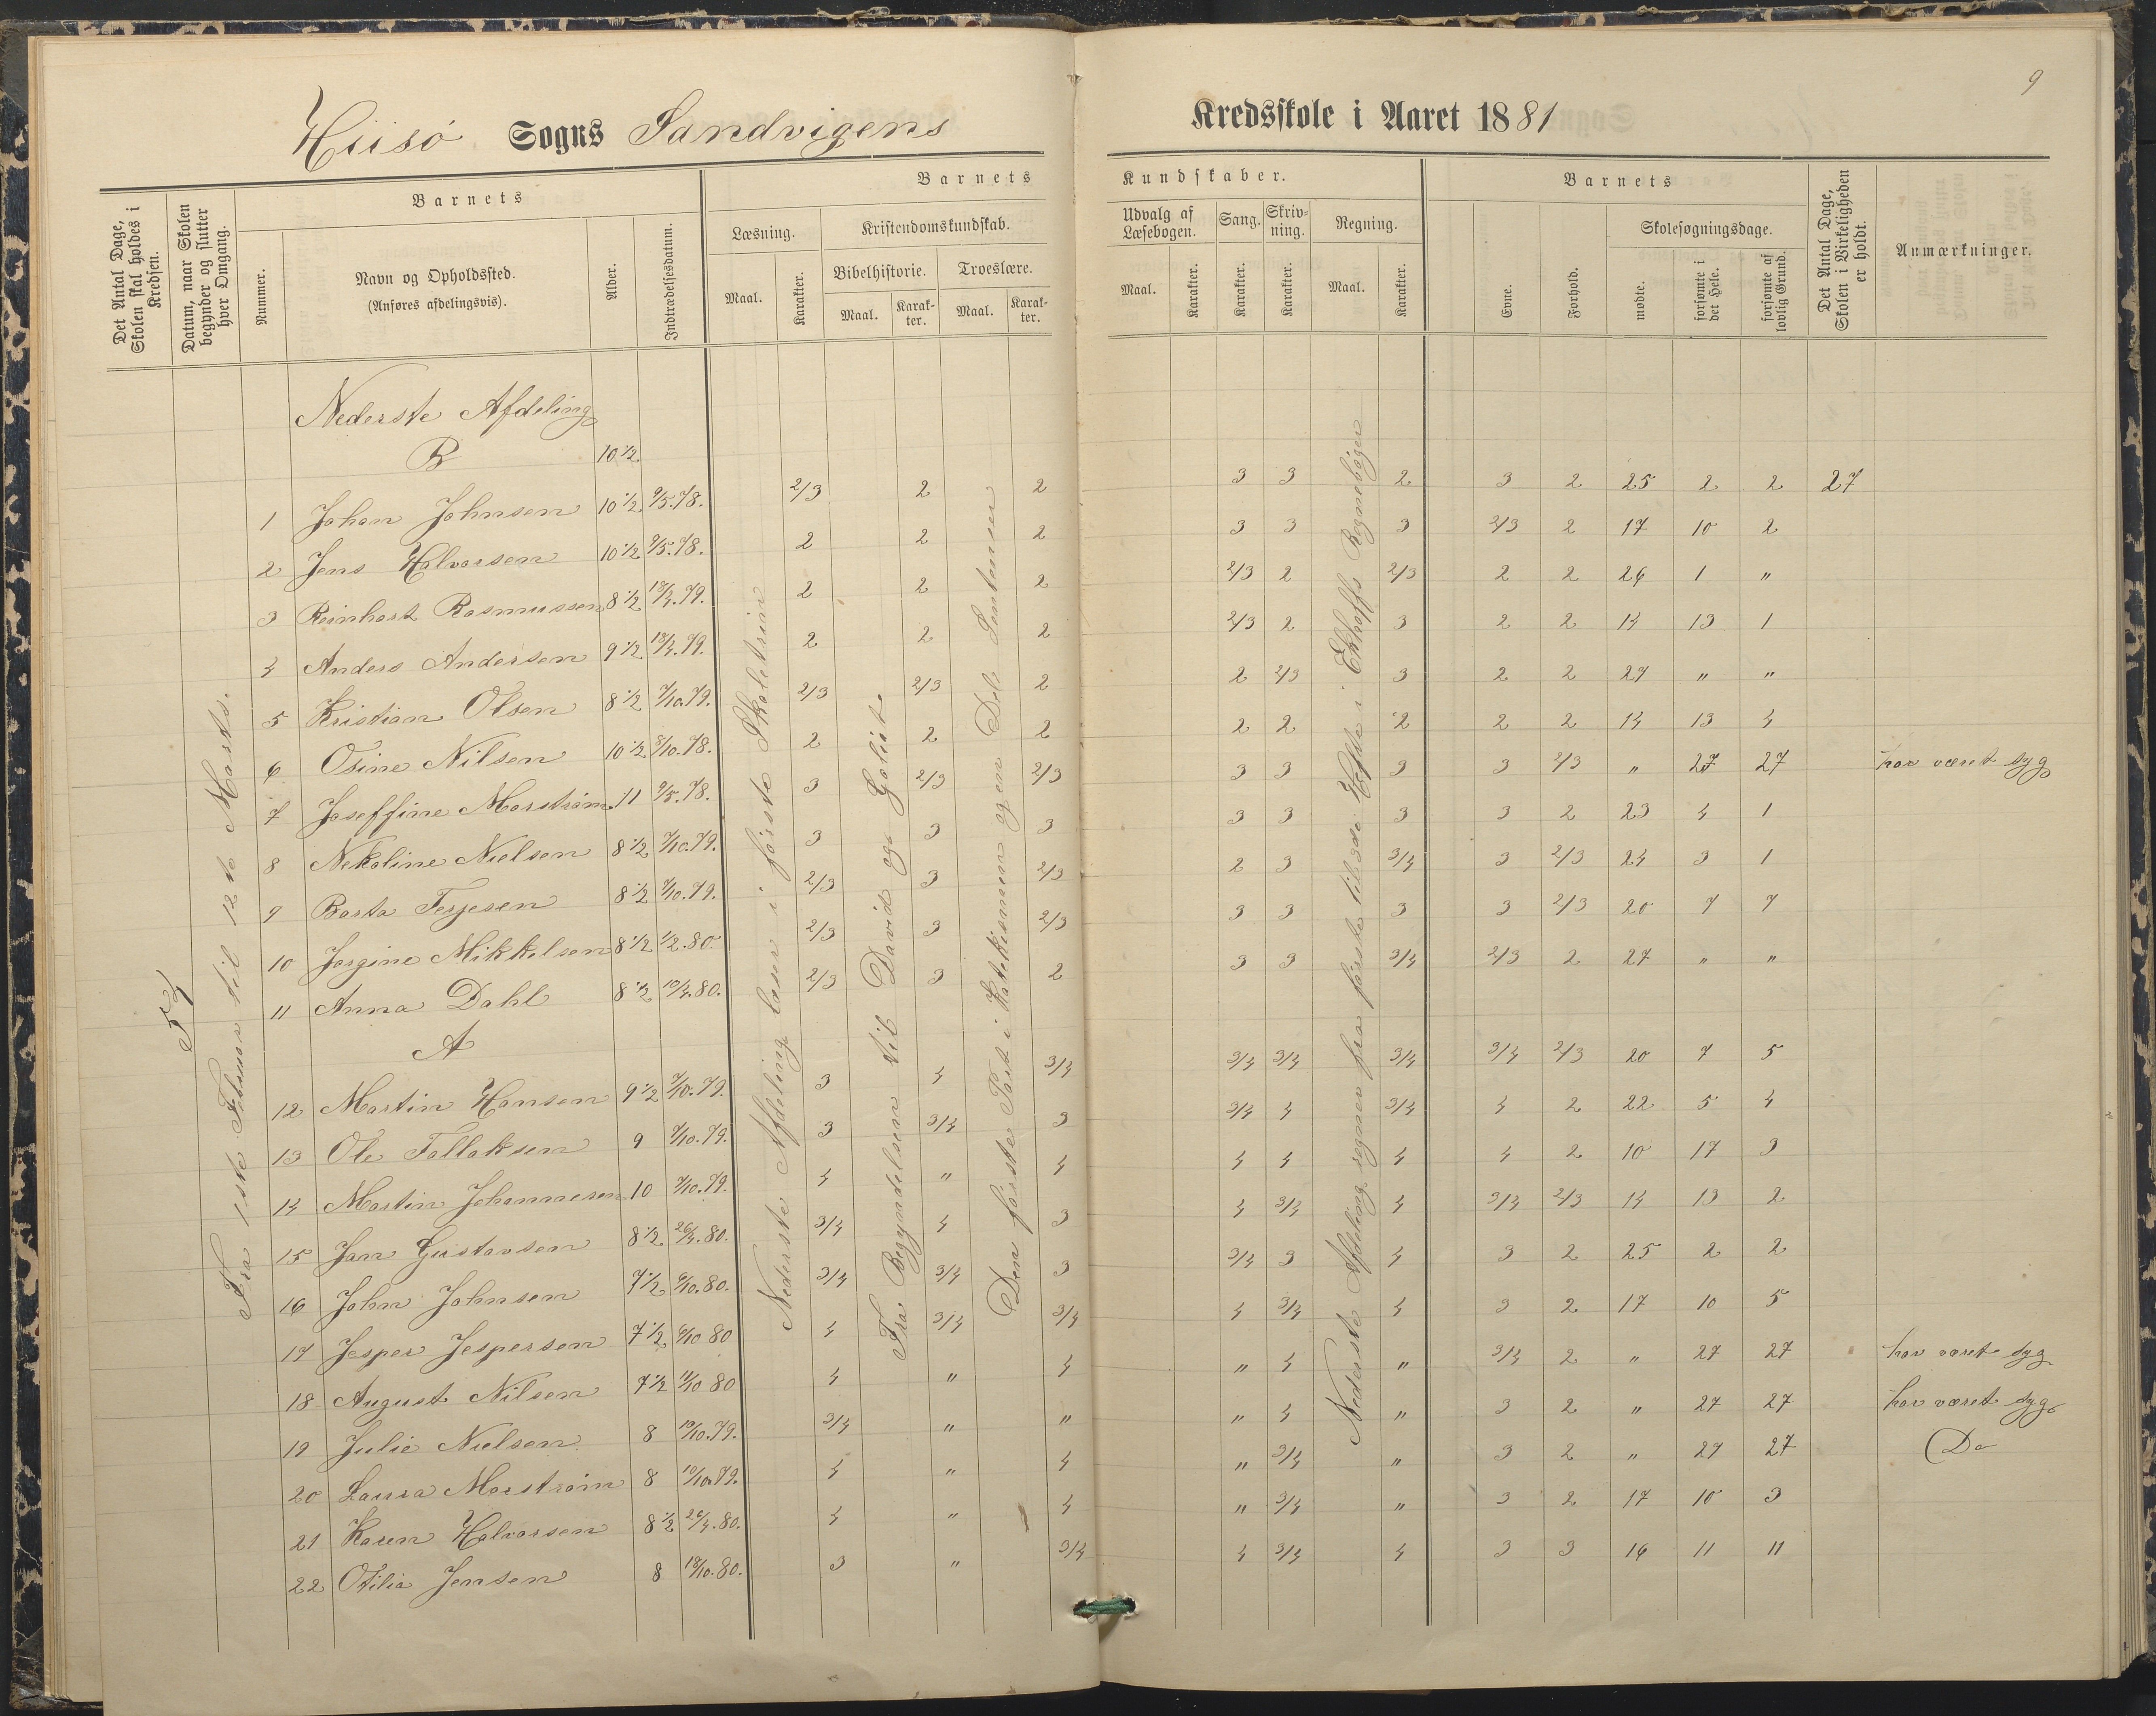 9
Hiisø Sogns Sandvigens Kredsskole i Aaret 1881
Det Antal Dage, Skolen skal holdes i Kredsen.
Datum, naar Skolen begynder og slutter hver Omgang.
Barnets
Nummer.
Navn og Opholdssted.
(Anføres afdelingsvis).
Alder.
Indtrædelsesdatum.
Barnets Kundskaber.
Læsning.
Maal.
Karakter.
Kristendomskundskab.
Bibelhistorie.
Maal.
Karakter.
Troeslære.
Maal.
Karakter.
Udvalg af Læsebogen.
Maal.
Karakter.
Sang.
Karakter.
Skrivning.
Karakter.
Regning.
Maal.
Karakter.
Barnets
Evne.
Forhold.
Skolesøgningsdage.
mødte.
forsømte i det Hele.
forsømte af lovlig Grund.
Det Antal Dage, Skolen i Virkeligheden er holdt.
Anmærkninger.
54
Fra 1ste Februar til 12te Marts.
Nederste Afdeling læser i første Skoletrin
Fra Begyndelsen til David og Goliat.
Den første Part i Katekismen og en Del Sentenser
Nederste Afdeling regner fra første til 3die Hefte i Ekhoffs Regnebøger
Nederste Afdeling
B 10 1/2
1 Johan Johnsen 10 1/2 9/5.78. 2/3 2 2 3 3 2 3 2 25 2 2 27
2 Jens Halvorsen 10 1/2 9/5.78. 2 2 2 3 3 3 2/3 2 17 10 2
3 Reinhart Rasmussen 8 1/2 18/4.79. 2 2 2 2/3 2 2/3 2 2 26 1 "
4 Anders Andersen 9 1/2 18/4.79. 2 2 2 2/3 2 3 2 2 14 13 1
5 Kristian Olsen 8 1/2 7/10.79. 2/3 2/3 2 2 2/3 3 2 2 27 " "
6 Osine Nilsen 10 1/2 8/10.78. 2 2 2 2 2 2 2 2 14 13 4
7 Joseffine Marstrøm 11 9/5.78. 3 2/3 2/3 3 3 3 3 2/3 " 27 27 har været syg
8 Nekoline Nielsen 8 1/2 7/10.79. 3 3 3 3 3 3 3 2 23 4 1
9 Berta Terjesen 8 1/2 7/10.79. 2/3 3 2/3 2 3 3/4 3 2/3 24 3 1
10 Jørgine Mikkelsen 8 1/2 1/2.80. 2/3 3 2/3 3 3 3 3 2/3 20 7 7
11 Anna Dahl 8 1/2 10/4.80. 2/3 3 2 3 3 3/4 2/3 2 27 " "
A
12 Martin Hansen 9 1/2 7/10.79. 3 4 3/4 3/4 3/4 3/4 3/4 2/3 20 7 5
13 Ole Tallaksen 9 7/10.79. 3 3/4 3 3/4 4 3/4 4 2 22 5 4
14 Martin Johannesen 10 7/10.79. 4 " 4 4 4 4 4 2 10 17 3
15 Jan Gustavsen 8 1/2 26/4.80. 3/4 4 3 4 3/4 4 3/4 2/3 14 13 2
16 John Johnsen 7 1/2 6/10.80. 3/4 3/4 3 3/4 3 4 3 2 25 2 2
17 Jesper Jespersen 7 1/2 6/10 80 4 3/4 3/4 4 3/4 4 3 2 17 10 5
18 August Nilsen 7 1/2 11/10 80 4 " 4 " 4 " 3/4 2 " 27 27 har været syg
19 Julie Nielsen 8 10/10.79. 3/4 " " " 4 " 3 2 " 27 27 har været syg
20 Laura Marstrøm 8 10/10.79. 4 " 4 " 3/4 " 3 2 " 27 27 Do
21 Karen Halvorsen 8 1/2 26/4.80. 4 " 4 " 3/4 " 3 2 17 10 3
22 Otilia Jensen 8 18/10.80. 3 " 3/4 4 3/4 4 3 3 16 11 11